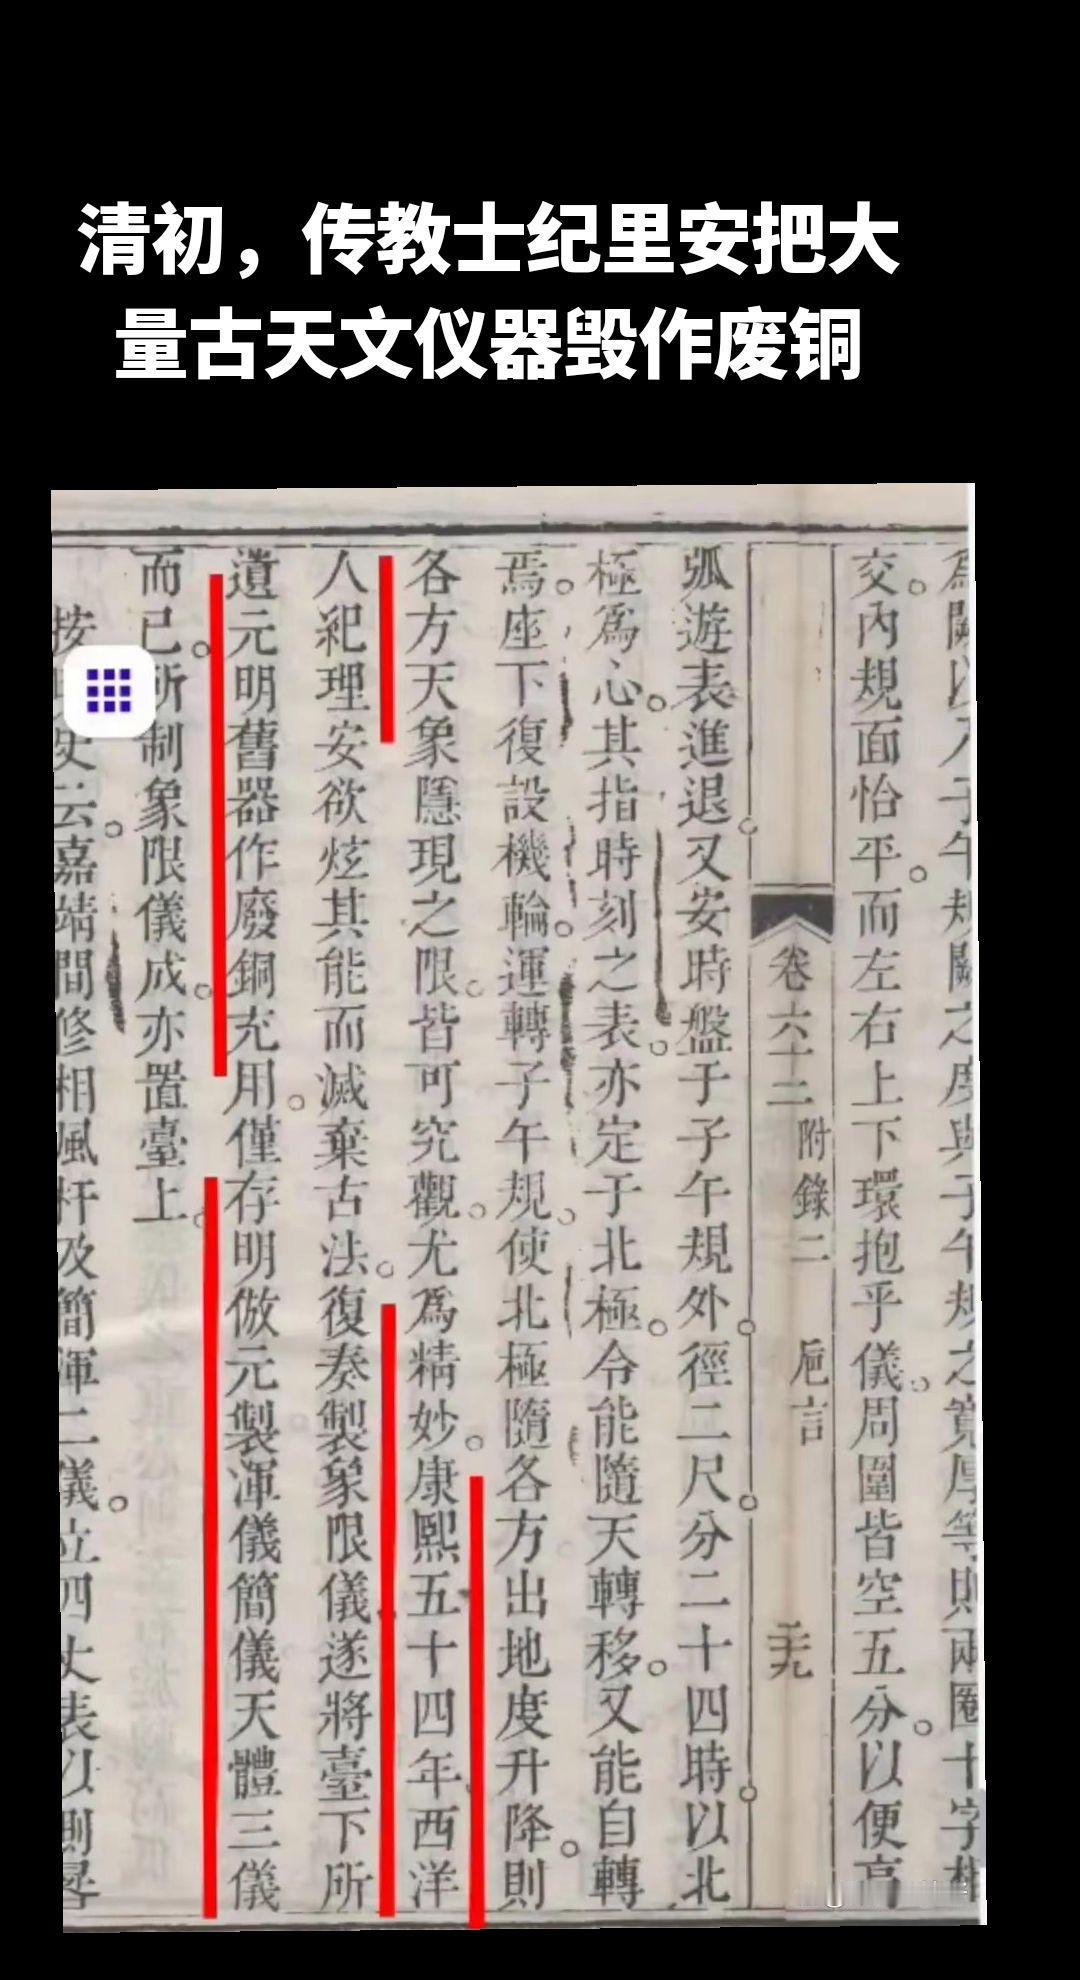 清初，传教士纪里安把大
量古天文仪器毁作废铜
交內規面恰平而左右上下環抱乎儀周圍皆空五分以便高
卷六十二 附錄二 巵言 二十九
弧遊表進退又安時盤于子午規外徑二尺分二十四時以北
極爲心其指時刻之表亦定于北極令能隨天轉移又能自轉
焉座下復設機輪運轉子午規使北極隨各方出地度升降則
各方天象隱現之限皆可究觀尤爲精妙康熙五十四年西洋
人紀理安欲炫其能而滅棄古法復奏製象限儀遂將臺下所
遺元明舊器作廢銅充用僅存明倣元製渾儀簡儀天體三儀
而已所制象限儀成亦置臺上
按史云嘉靖間修相風杆及簡渾二儀立四丈表以測晷